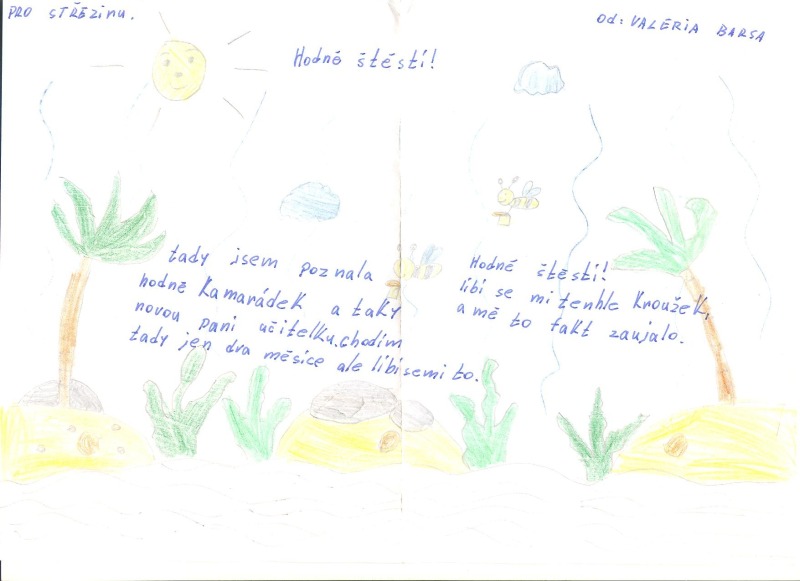 PRO STŘEZINU.
Od: VALERIA BARSA
Hodně štěstí!
tady jsem poznala
hodně kamarádek a taky
novou paní učitelku.chodím
tady jen dva měsíce ale líbí semi to.
Hodně štěstí!
líbí se mi tenhle kroužek,
a mě to fakt zaujalo.